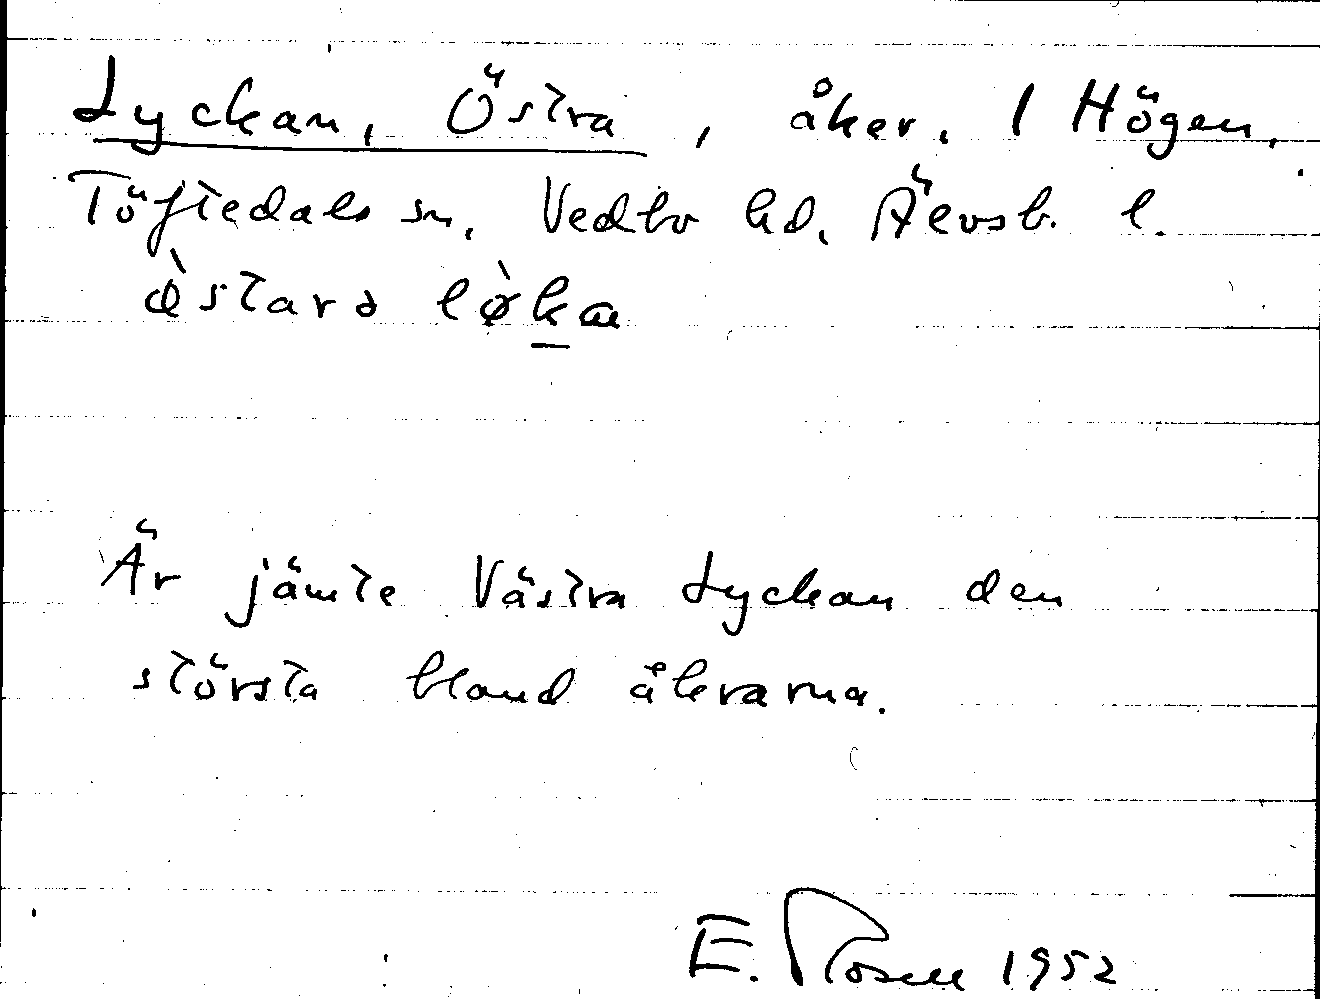 Lyckan, Östra, åker. 1 Högen,
Töftedals sn, Vedbo hd, Älvsb. l.
ø̀stara lø̀ka
Är jämte Västra Lyckan den
största bland åkrarna.
E. Rosell 1952